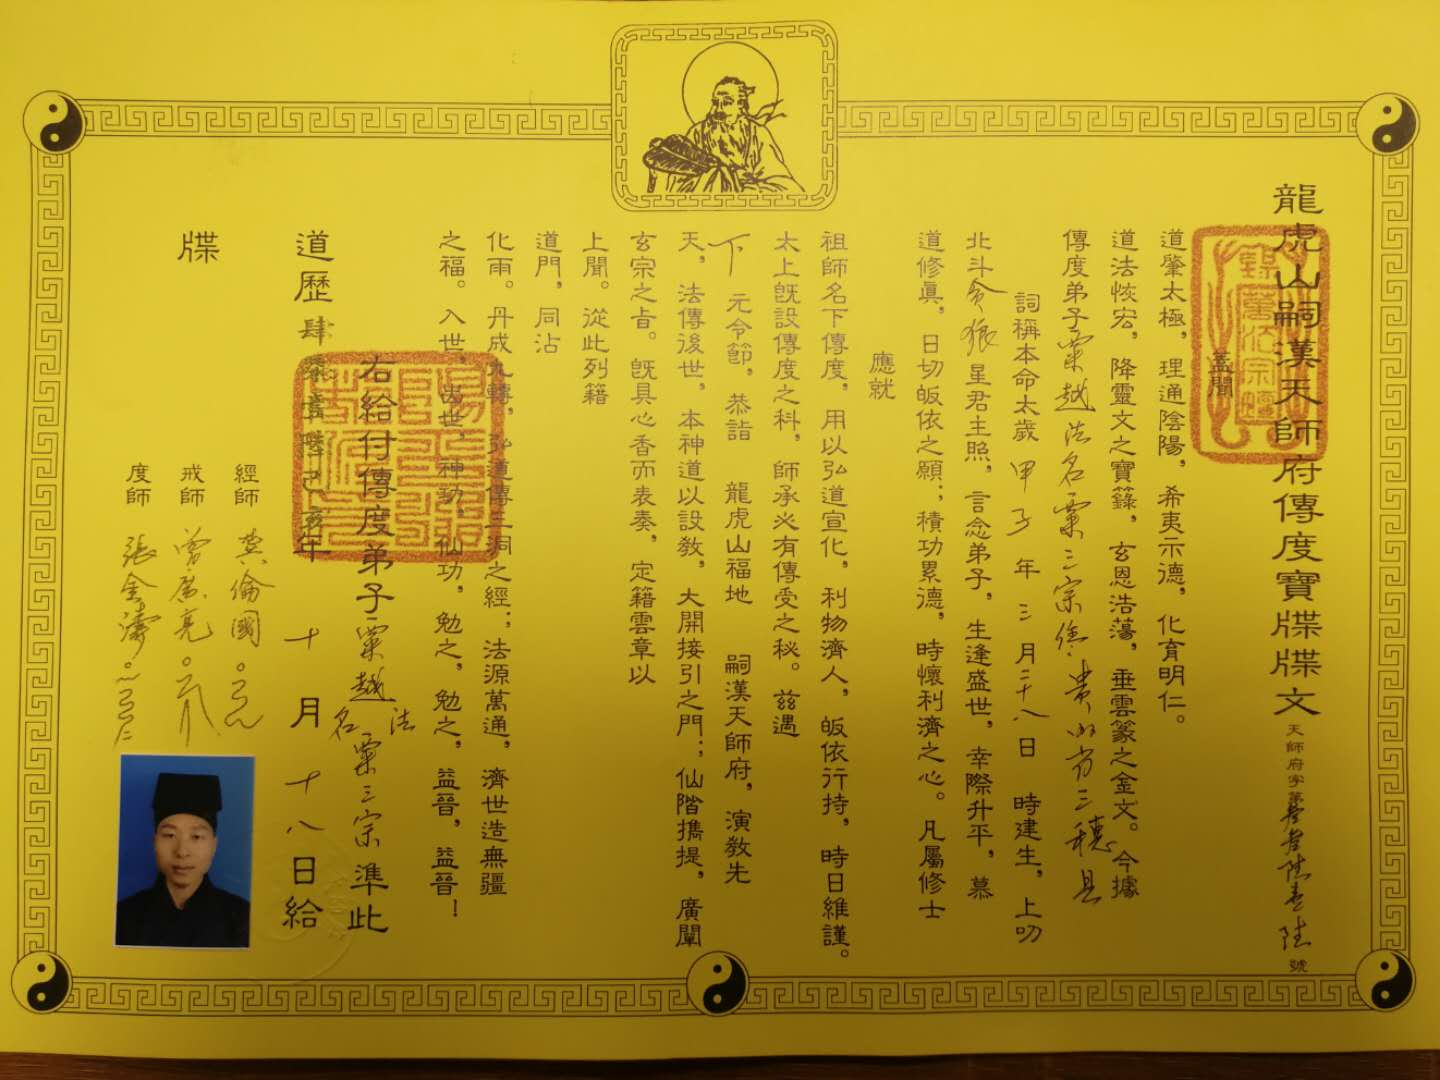 龍虎山嗣漢天師府傳度寶牒牒文
天師府字第 陸壹陸號
蓋聞
道肇太極，理通陰陽，希夷示德，化育明仁。
道法恢宏，降靈文之寶籙，玄恩浩蕩，垂雲篆之金文。今據
傳度弟子粟越法名粟三宗係貴州省三穗县
詞稱本命太歲甲子年三月二十八日 時建生，上叩
北斗贪狼星君主照，言念弟子，生逢盛世，幸際升平，慕
道修真，日切皈依之願；積功累德，時懷利濟之心。凡屬修士
應就
祖師名下傳度，用以弘道宣化，利物濟人，皈依行持，時日維謹。
太上旣設傳度之科，師承必有傳受之秘。茲遇
下元令節，恭詣 龍虎山福地 嗣漢天師府，演教先
天，法傳後世，本神道以設教，大開接引之門；仙階擕提，廣闡
玄宗之旨。旣具心香而表奏，定籍雲章以
上聞。從此列籍
道門，同沾
化雨。丹成九轉，弘道傳三洞之經；法源萬通，濟世造無疆
之福。入世，出世，神功，仙功，勉之，勉之，益晉，益晉！
右給付傳度弟子粟越法名粟三宗準此
道歷肆 壹陸 年十月十八日給
牒
經師 倫國
戒師 曾廣亮
度師 張金濤